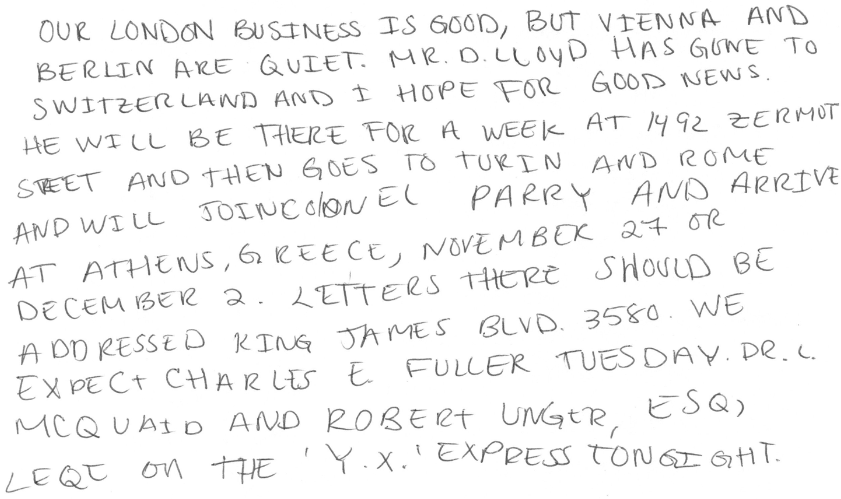 OUR LONDON BUSINESS IS GOOD, BUT VIENNA AND
BERLIN ARE QUIET. MR. D. LLOYD HAS GONE TO
SWITZERLAND AND I HOPE FOR GOOD NEWS.
HE WILL BE THERE FOR A WEEK AT 1492 ZERMOT
STEET AND THEN GOES TO TURIN AND ROME
AND WILL JOIN COLONEL PARRY AND ARRIVE
AT ATHENS, GREECE, NOVEMBER 27 OR
DECEMBER 2. LETTERS THERE SHOULD BE
ADDRESSED KING JAMES BLVD. 3580. WE
EXPECT CHARLES E. FULLER TUESDAY. DR. L.
MCQUAID AND ROBERT UNGER, ESQ,
LEQT ON THE 'Y.X.' EXPRESS TONGIGHT.